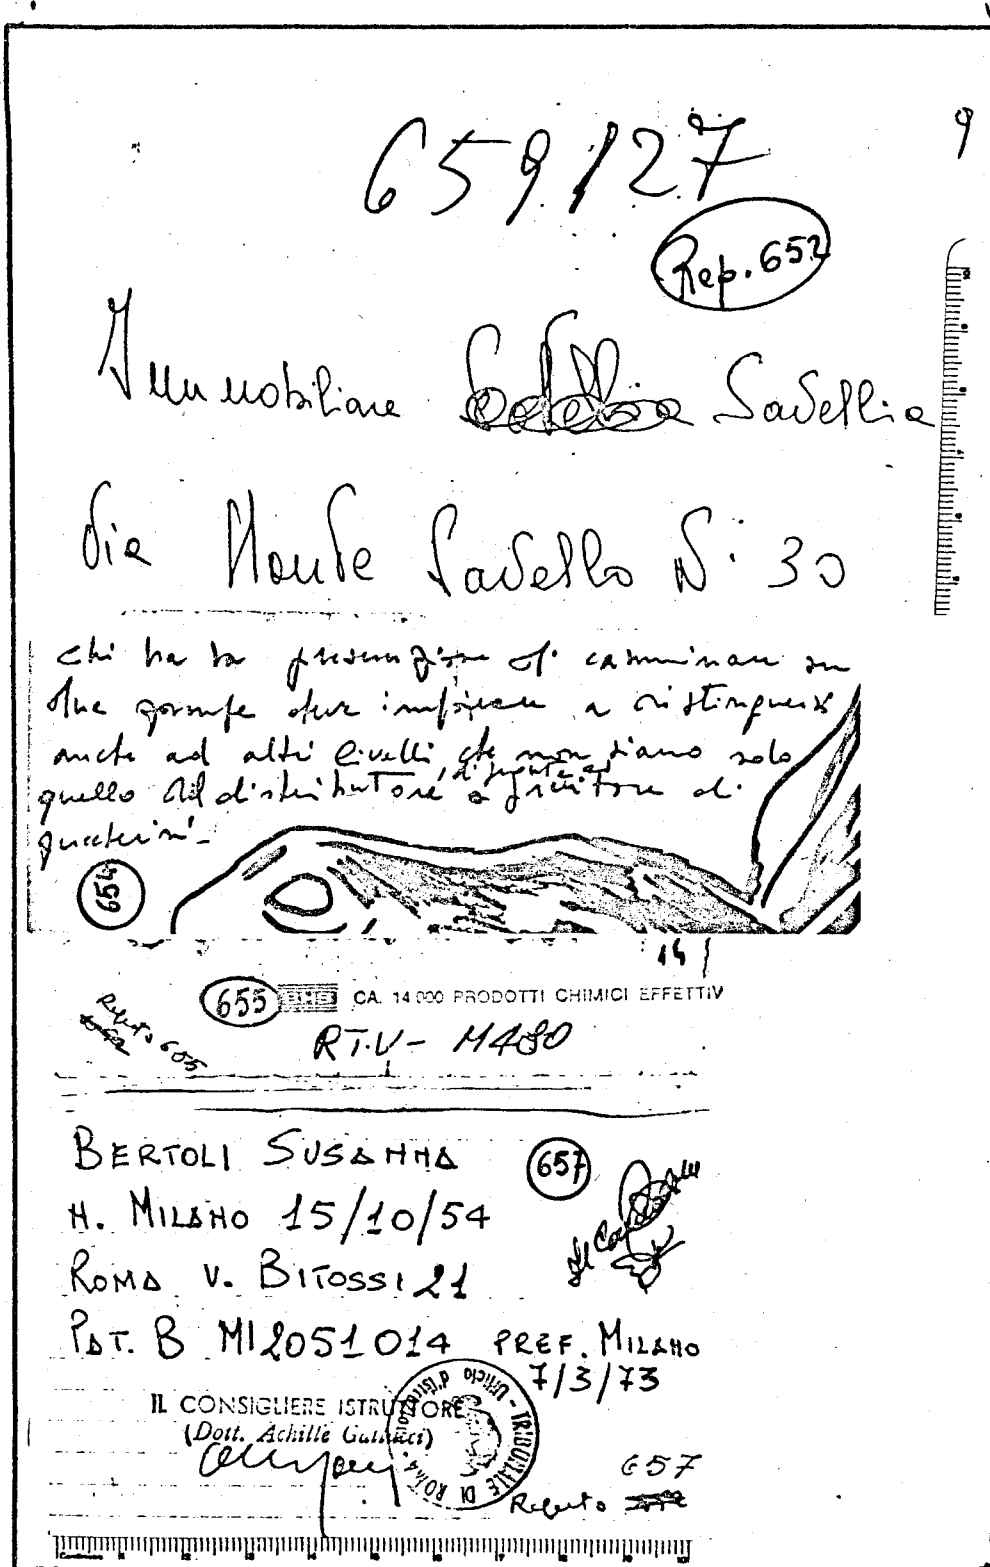 9
659127
Rep. 652
Immobiliare Savellia
Via Monte Savello N. 30
chi ha la presunzione di camminare su
due gambe deve imparare a distinguersi
anche ad altri livelli, che non siano solo
quello del distributore, di a di
654
14
655 CA. 14 000 PRODOTTI CHIMICI EFFETTIV
Reperto 655
RT.V - M480
BERTOLI SUSANNA
657
N. MILANO 15/10/54
ROMA V. BITOSSI 21
PAT. B MI2051014 PREF. MILANO
7/3/73
IL CONSIGLIERE ISTRUTTORE
(Dott. Achille Gallucci)
TRIBUNALE DI ROMA - Ufficio d'Istruzione
657
Reperto